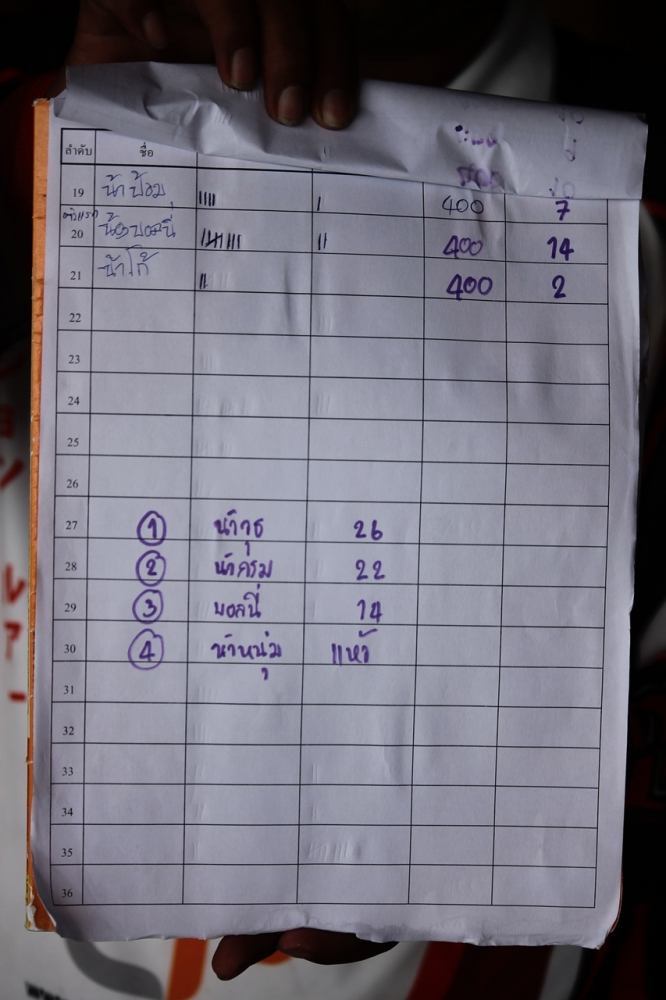 ลำดับ ชื่อ
19 น้าป้อม 400 7
20 น้องบอลนี่ 400 14
21 น้าโก้ 400 2
22
23
24
25
26
27 1 น้าวุธ 26
28 2 น้ากรม 22
29 3 บอลนี่ 14
30 4 น้าหนุ่ม แห้ว
31
32
33
34
35
36